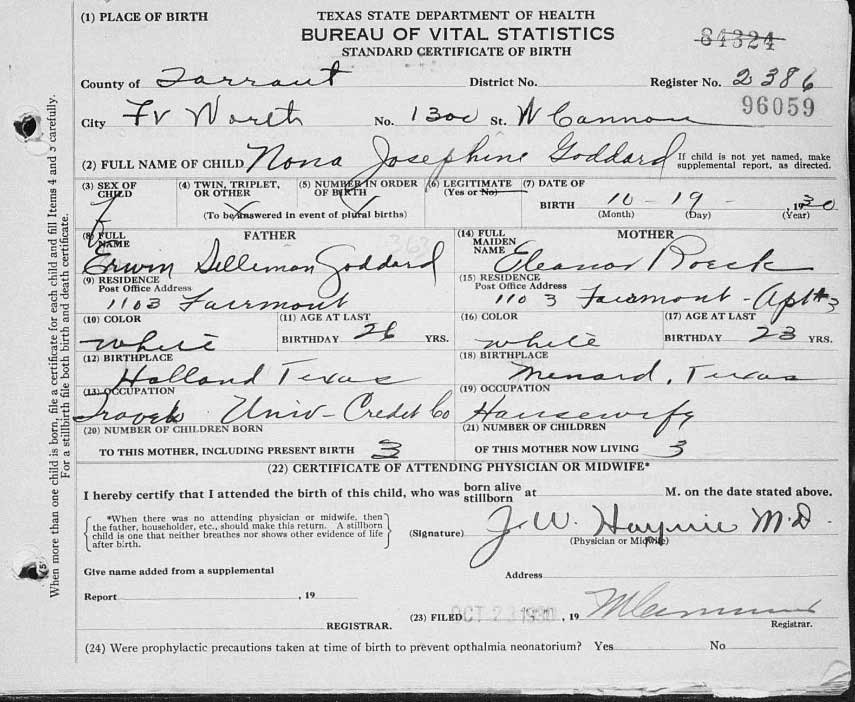 (1) PLACE OF BIRTH
TEXAS STATE DEPARTMENT OF HEALTH
BUREAU OF VITAL STATISTICS
STANDARD CERTIFICATE OF BIRTH
84324
County of Tarrant District No. Register No. 2386
96059
City Ft Worth No. 1300 St. W Cannon
(2) FULL NAME OF CHILD Nona Josephine Goddard
If child is not yet named, make
supplemental report, as directed.
(3) SEX OF
CHILD F
(4) TWIN, TRIPLET,
OR OTHER
(5) NUMBER IN ORDER
OF BIRTH
(To be answered in event of plural births)
(6) LEGITIMATE
(Yes or No)
(7) DATE OF
BIRTH 10 - 19 - 1930
(Month) (Day) (Year)
(8) FULL
NAME
FATHER
Erwin Goddard
(9) RESIDENCE
Post Office Address
1103 Fairmont
(10) COLOR
White
(11) AGE AT LAST
BIRTHDAY 26 YRS.
(12) BIRTHPLACE
Holland Texas
(13) OCCUPATION
Univ - Credit Co
(20) NUMBER OF CHILDREN BORN
TO THIS MOTHER, INCLUDING PRESENT BIRTH 3
(14) FULL
MAIDEN
NAME
MOTHER
Eleanor Roeck
(15) RESIDENCE
Post Office Address
1103 Fairmont - Apt #3
(16) COLOR
White
(17) AGE AT LAST
BIRTHDAY 23 YRS.
(18) BIRTHPLACE
Menard, Texas
(19) OCCUPATION
Housewife
(21) NUMBER OF CHILDREN
OF THIS MOTHER NOW LIVING 3
(22) CERTIFICATE OF ATTENDING PHYSICIAN OR MIDWIFE*
I hereby certify that I attended the birth of this child, who was born alive
stillborn at M. on the date stated above.
*When there was no attending physician or midwife, then
the father, householder, etc., should make this return. A stillborn
child is one that neither breathes nor shows other evidence of life
after birth.
(Signature) J. W. Haynie M.D.
(Physician or Midwife)
Give name added from a supplemental
Address
Report , 19
REGISTRAR.
(23) FILED OCT 23 1930 , 19
Registrar.
(24) Were prophylactic precautions taken at time of birth to prevent opthalmia neonatorium? Yes No
When more than one child is born, file a certificate for each child and fill Items 4 and 5 carefully.
For a stillbirth file both birth and death certificate.